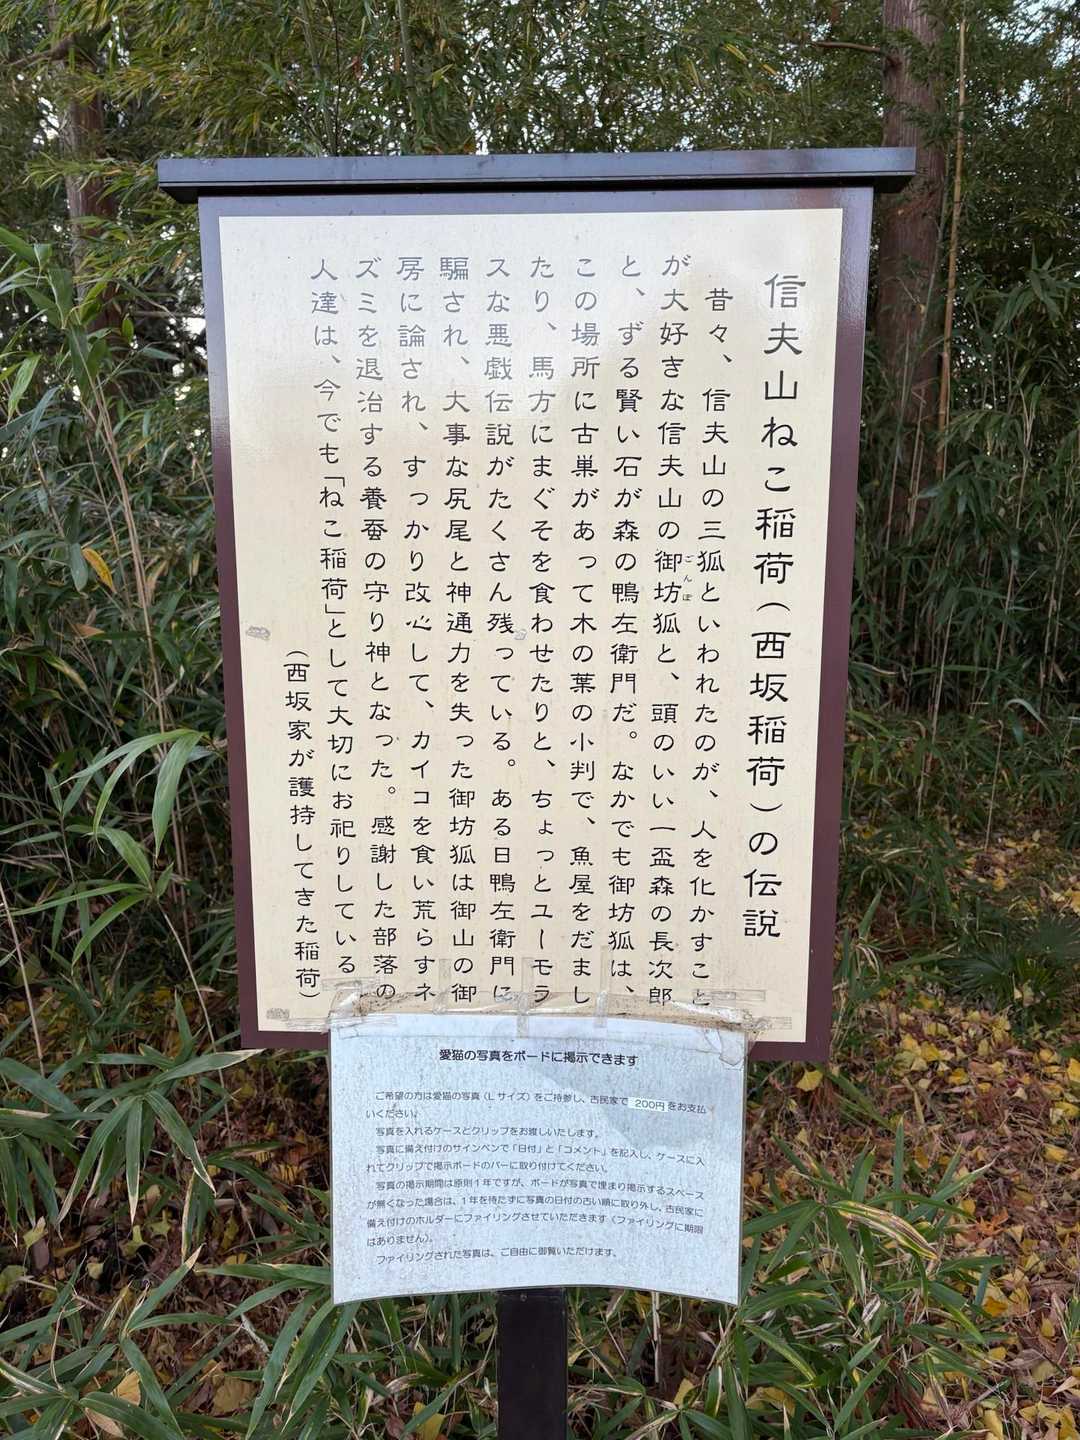 信夫山ねこ稲荷(西坂稲荷)の伝説
昔々、信夫山の三狐といわれたのが、人を化かすこと
が大好きな信夫山の御坊狐と、頭のいい一盃森の長次郎
ごんぼ
と、ずる賢い石が森の鴨左衛門だ。なかでも御坊狐は、
この場所に古巣があって木の葉の小判で、魚屋をだまし
たり、馬方にまぐそを食わせたりと、ちょっとユーモラ
スな悪戯伝説がたくさん残っている。ある日鴨左衛門に
騙され、大事な尻尾と神通力を失った御坊狐は御山の御
房に諭され、すっかり改心して、カイコを食い荒らすネ
ズミを退治する養蚕の守り神となった。感謝した部落の
人達は、今でも「ねこ稲荷」として大切にお祀りしている
(西坂家が護持してきた稲荷)
愛猫の写真をボードに掲示できます
ご希望の方は愛猫の写真(Lサイズ)をご持参し、古民家で 200円 をお支払
いください。
写真を入れるケースとクリップをお渡しいたします。
写真に備え付けのサインペンで「日付」と「コメント」を記入し、ケースに入
れてクリップで掲示ボードのバーに取り付けてください。
写真の掲示期間は原則1年ですが、ボードが写真で埋まり掲示するスペース
が無くなった場合は、1年を待たずに写真の日付の古い順に取り外し、古民家に
備え付けのホルダーにファイリングさせていただきます(ファイリングに期限
はありません)。
ファイリングされた写真は、ご自由に御覧いただけます。